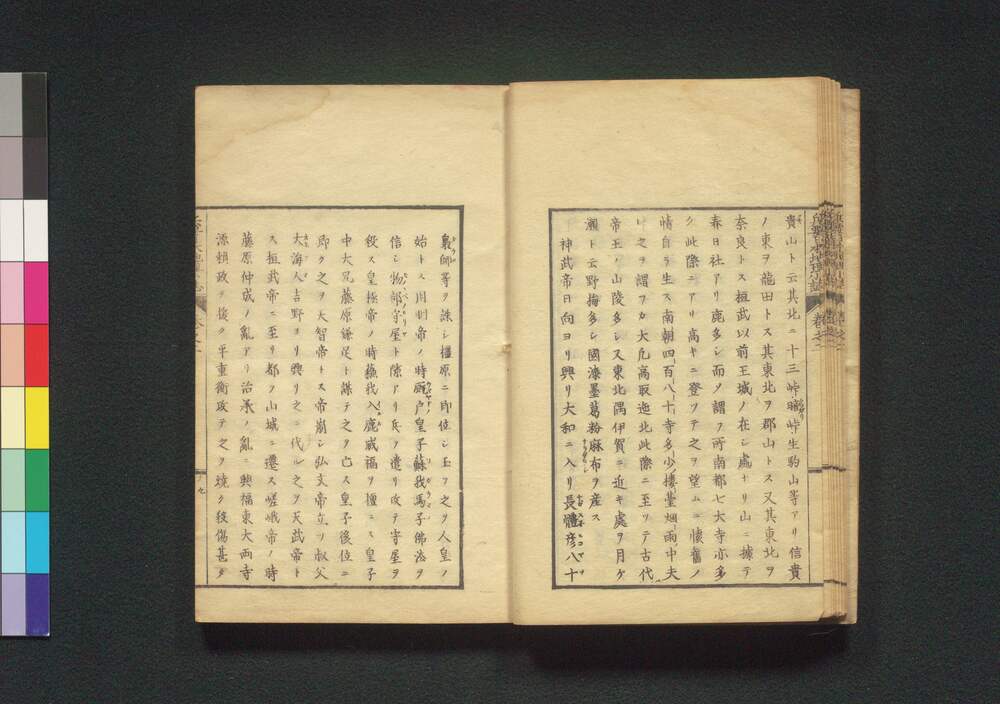 貴山ト云其北ニ十三峠暗峠生駒山等アリ信貴
ノ東ヲ龍田トス其東北ヲ郡山トス又其東北ヲ
奈良トス桓武以前王城ノ在シ處ナリ山ニ據テ
春日社アリ鹿多シ而ノ謂フ所南都七大寺亦多
ク此際ニアリ高キニ登ツテ之ヲ望ムニ懐舊ノ
情自ラ生ス南朝四百八十寺多少樓臺烟雨中夫
レ之ヲ謂フカ大凡高取迤北此際ニ至ツテ古代
帝王ノ山陵多シ又東北隅伊賀ニ近キ處ヲ月ケ
瀬ト云野梅多シ國漆墨葛粉麻布ヲ産ス
神武帝日向ヨリ興リ大和ニ入リ長髓彦八十
梟師等ヲ誅シ橿原ニ即位シ玉フ之ヲ人皇ノ
始トス用明帝ノ時厩戸皇子蘇我馬子佛法ヲ
信シ物部守屋ト隙アリ兵ヲ遣リ攻テ守屋ヲ
殺ス皇極帝ノ時蘇我入鹿威福ヲ擅ニス皇子
中大兄藤原鎌足ト謀テ之ヲ亡ス皇子後位ニ
即ク之ヲ天智帝トス帝崩シ弘文帝立ツ叔父
大海人吉野ヨリ興リ之ニ代ル之ヲ天武帝ト
ス桓武帝ニ至リ都ヲ山城ニ遷ス嵯峨帝ノ時
藤原仲成ノ亂アリ治承ノ亂ニ興福東大両寺
源頼政ヲ援ク平重衡攻テ之ヲ焼ク殺傷甚多